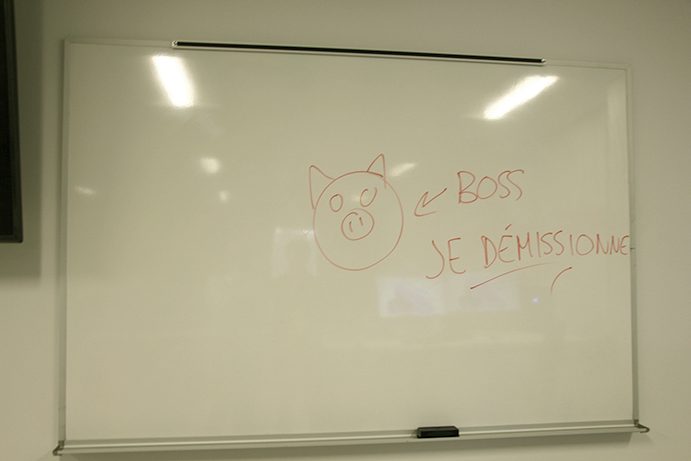 BOSS
JE DÉMISSIONNE